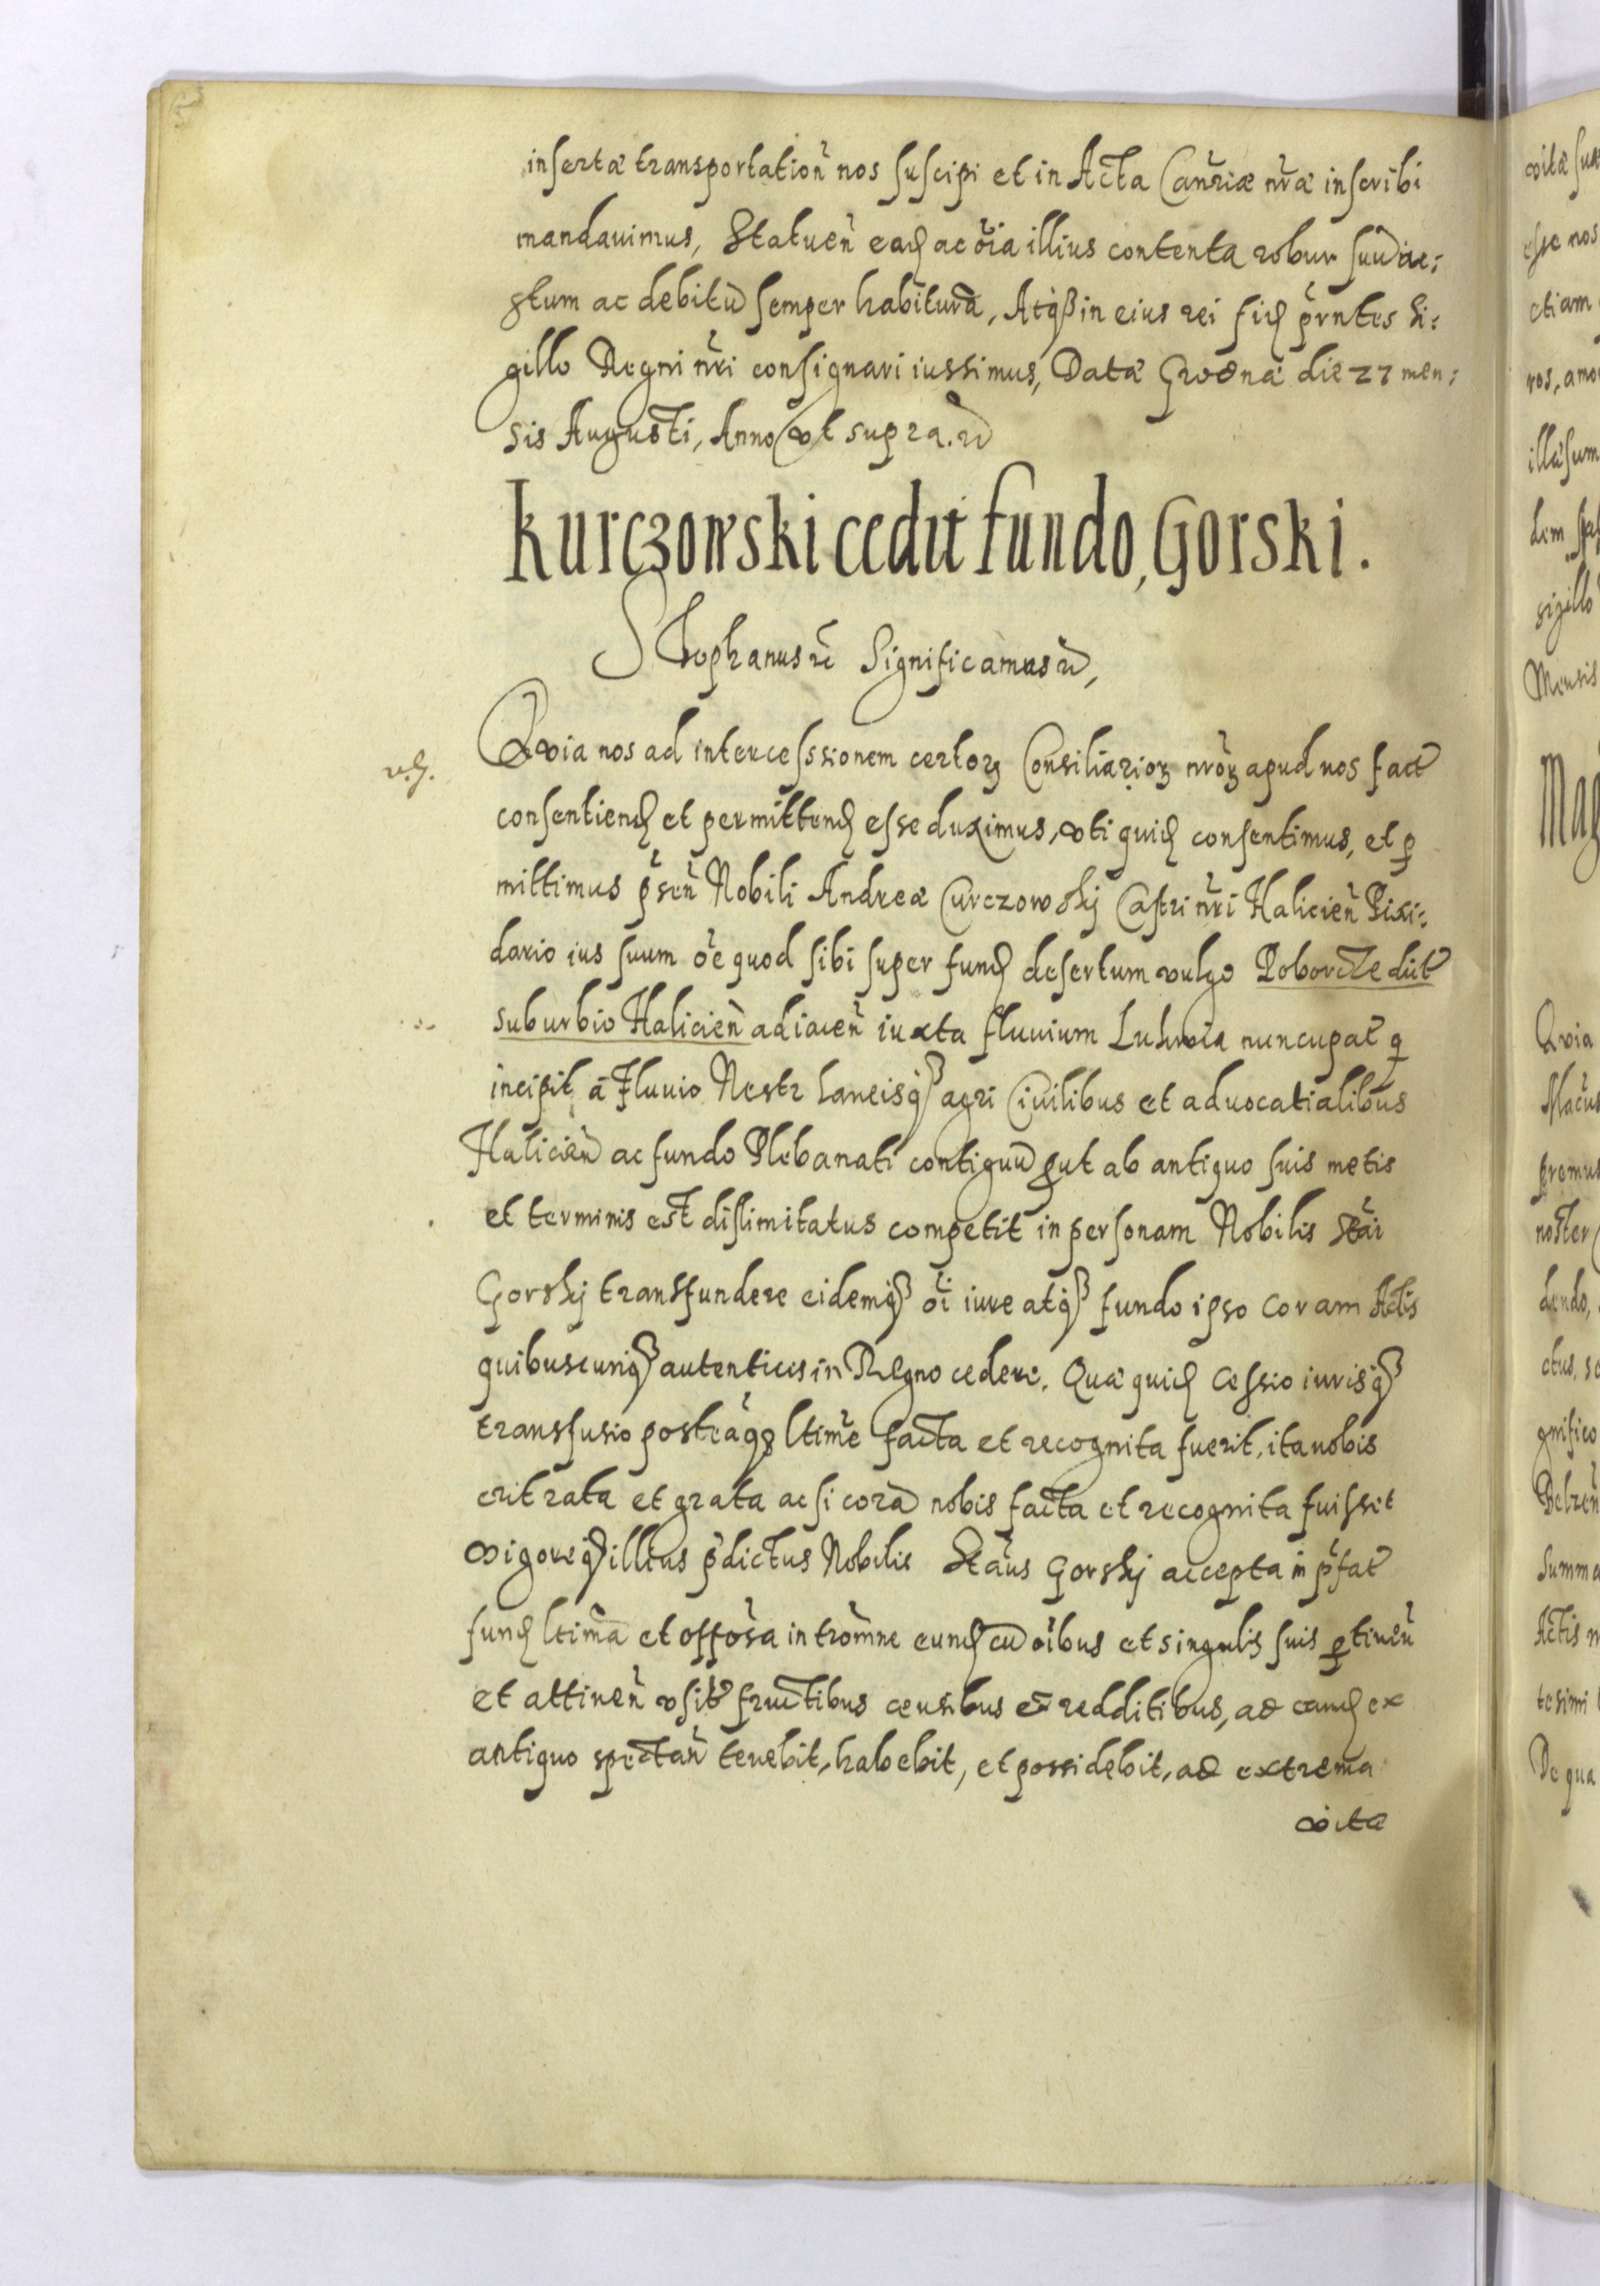 insertæ transportation̄ nos suscipi et in Acta Can̄riæ nr̄æ inscribi
mandavimus, Statuen̄ ead ac oīa illius contenta robur suū iu:
stum ac debitū semper habitura, Atq in eius rei fid pr̄ntes Si:
gillo Regni nr̄i consignari iussimus, Datæ Grodnæ die 27 men:
sis Augusti, Anno vt supra.
Kurczowski cedit fundo, Gorski.
Stephanus rc̄ Significamus
Qvia nos ad intercessionem certor Consiliarior nr̄or apud nos fact
consentiend et permittend esse duximus, vti quid consentimus, et p
mittimus p̄sen̄ Nobili Andreæ Curczowskj Castri nr̄i Halicien̄ Pixi:
dario ius suum ōe quod sibi super fund desertum vulgo
suburbio Halicien̄ adiacen̄ iuxta fluvium Lukwia nuncupat q
incipit a Fluvio Nestr Laneisq agri Civilibus et advocatialibus
Halicien̄ ac fundo Plebanali contiguū put ab antiquo suis metis
et terminis est dislimitatus competit in personam Nobilis Stāi
Gorskj transfundere eidemq ōi iure atq fundo ipso coram Actis
quibuscunq autenticis in Regno cedere. Quæ quid Cessio iurisq
transfusio postea ltime facta et recognita fuerit, ita nobis
erit rata et grata ac si corā nobis facta et recognita fuisset
Vigoreq illius p̄dictus Nobilis Stāus Gorskj accepta in p̄fat
fund ltima et offōsa intrōmne eund cū oībus et singulis suis ptinen̄
et attinen̄ vsib fructibus censibus et redditibus, ad eund ex
antiquo spectan̄ tenebit, habebit, et possidebit, ad extrema
vitæ